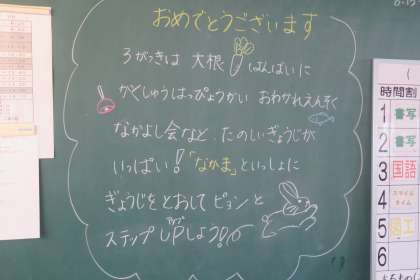 おめでとうございます
3がっきは 大根はんばいに
がくしゅうはっぴょうかい おわかれえんそく
なかよし会など、たのしいぎょうじが
いっぱい!「なかま」といっしょに
ぎょうじをとおしてピョンと
ステップUPしよう!
時間割
1 書写
2 書写
3 国語
4 スマイルタイム
5 図工
6